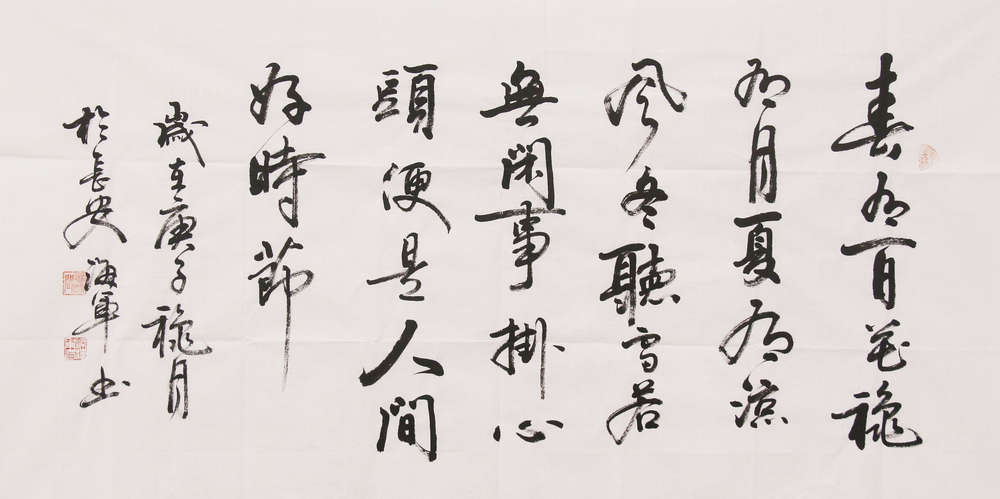 春有百花穐
有月夏有涼
风冬聽雪若
無閑事掛心
頭便是人間
好時節
歲在庚子穐月
於長安海軍书